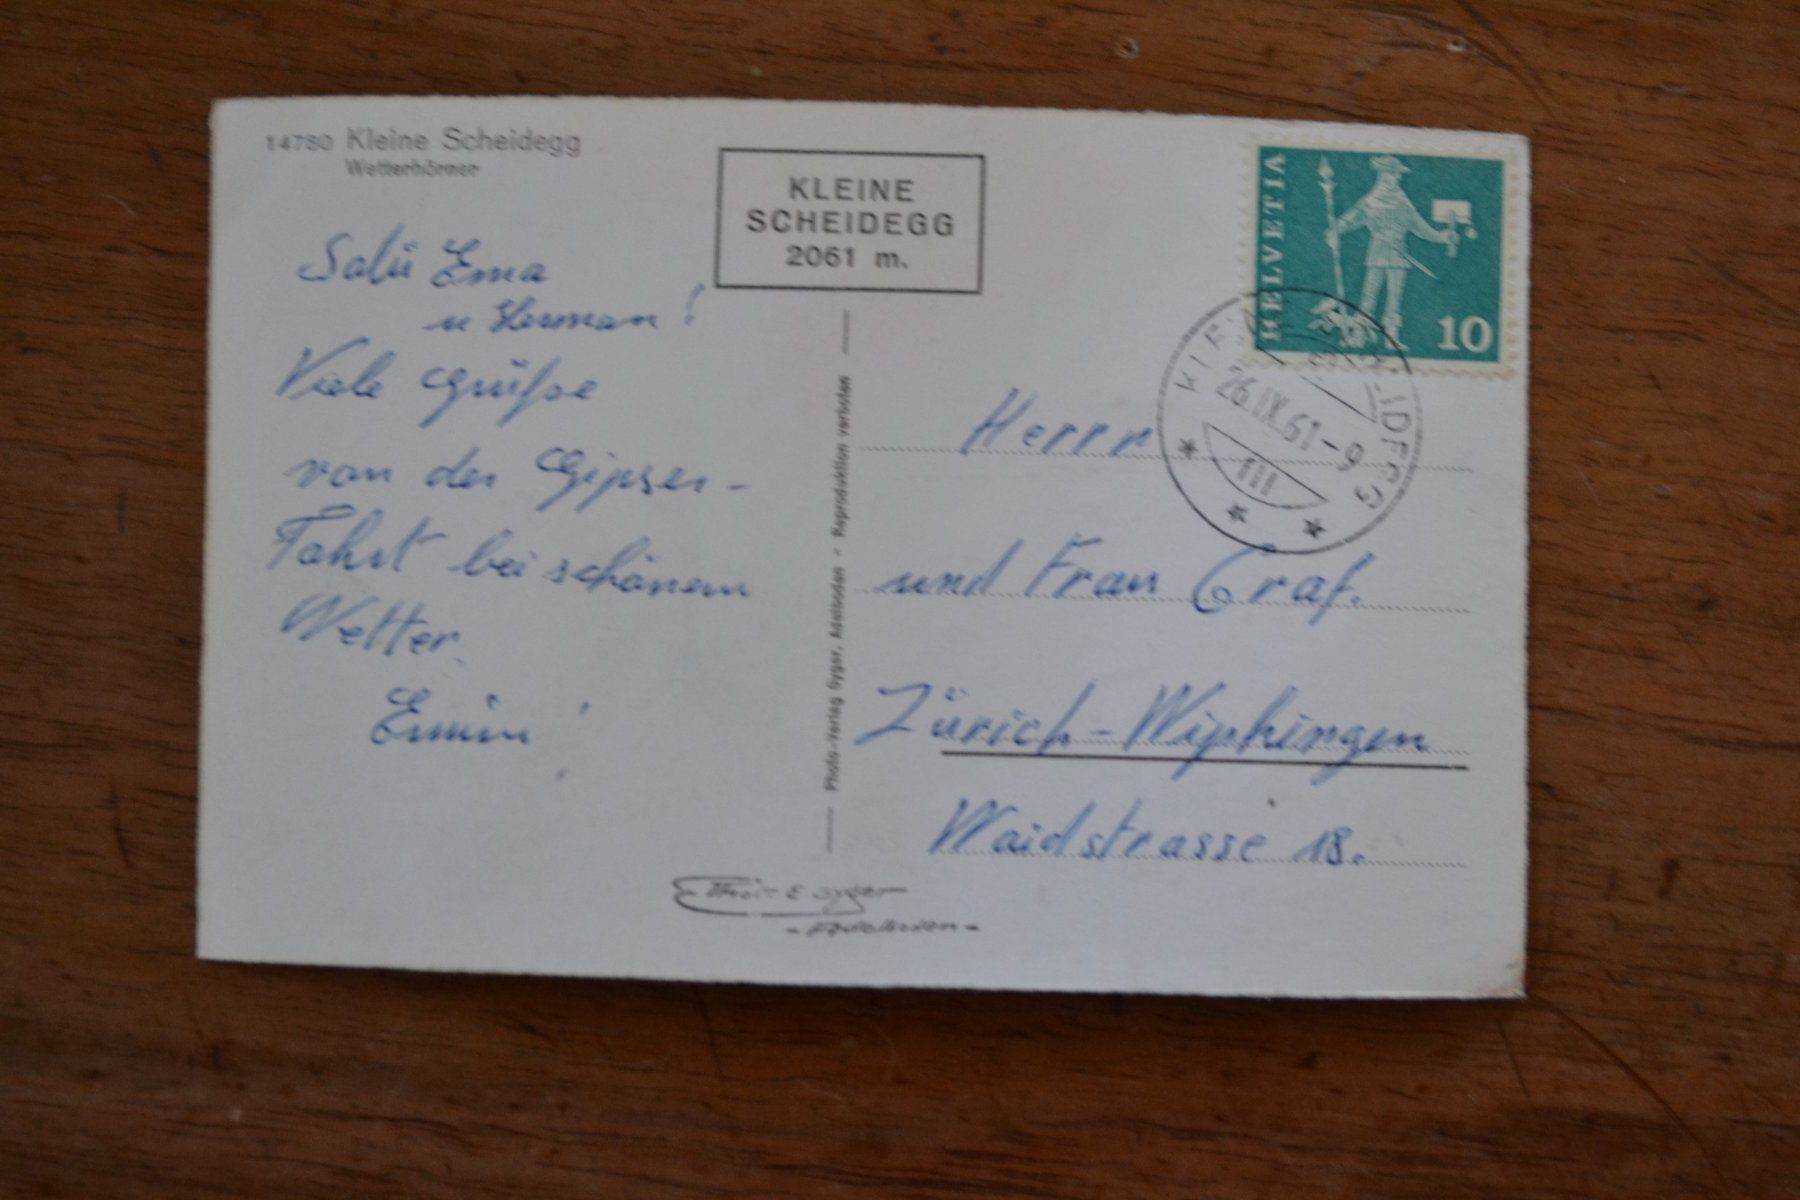 14780 Kleine Scheidegg
Wetterhörner
KLEINE
SCHEIDEGG
2061 m.
HELVETIA
10
26.IX.61-9
Salü Erna
u Herman!
Viele Grüsse
von der Gipser-
Fahrt bei schönem
Wetter.
Erwin!
Photo-Verlag Gyger, Adelboden - Reproduktion verboten
Herrn
und Frau Graf.
Zürich-Wipkingen
Waidstrasse 18.
E Gyger
- Adelboden -